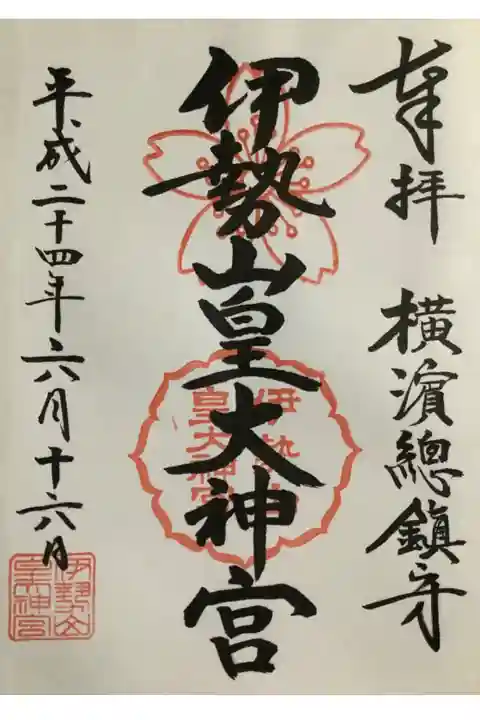 奉拝 横濱總鎮守
伊勢山皇大神宮
平成二十四年六月十六日
伊勢山皇大神宮
伊勢山皇神宮